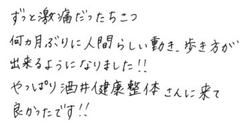 ずっと激痛だったちこつ
何ヵ月ぶりに人間らしい動き、歩き方が
出来るようになりました!!
やっぱり酒井健康整体さんに来て
良かったです!!